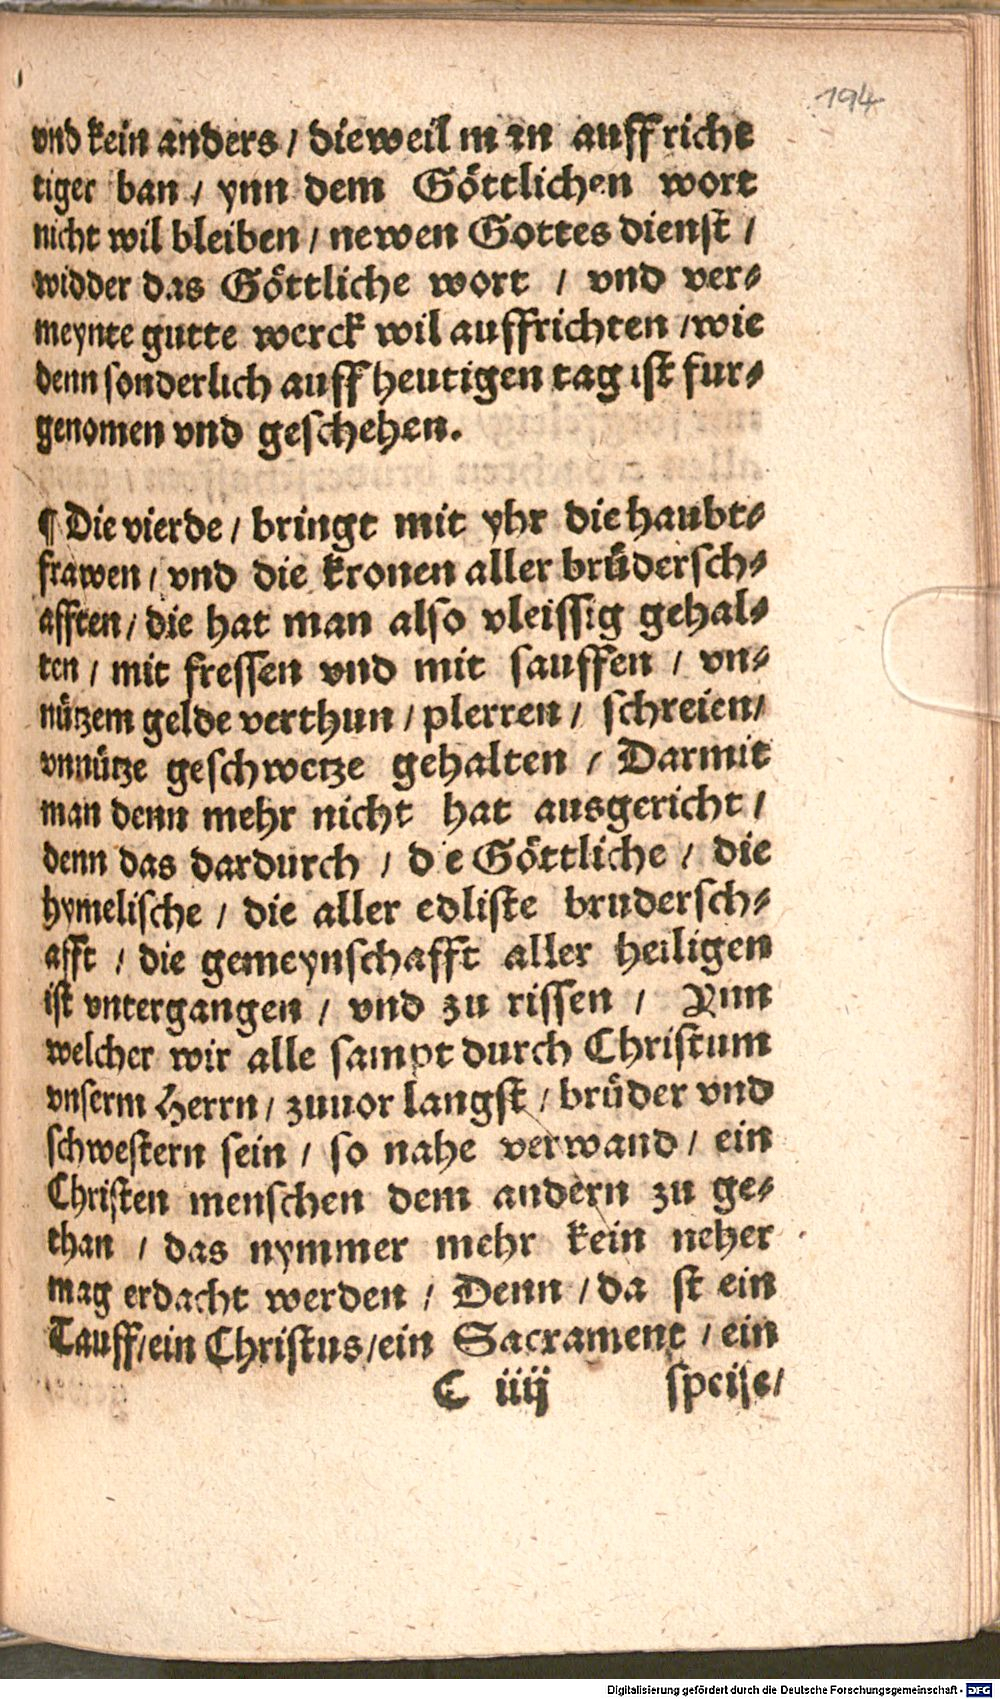 194
vnd kein anders / dieweil man auffricht
tiger ban / ynn dem Göttlichen wort
nicht wil bleiben / newen Gottes dienst /
widder das Göttliche wort / vnd ver⸗
meynte gutte werck wil auffrichten / wie
denn sonderlich auff heutigen tag ist fur⸗
genomen vnd geschehen.
¶ Die vierde / bringt mit yhr die haubt⸗
frawen / vnd die kronen aller brüdersch⸗
afften / die hat man also vleissig gehal⸗
ten / mit fressen vnd mit sauffen / vn⸗
nützem gelde verthun / plerren / schreien /
vnnütze geschwetze gehalten / Darmit
man denn mehr nicht hat ausgericht /
denn das dardurch / die Göttliche / die
hymelische / die aller edliste brudersch⸗
afft / die gemeynschafft aller heiligen
ist vntergangen / vnd zu rissen / Ynn
welcher wir alle sampt durch Christum
vnserm Herrn / zuuor langst / brüder vnd
schwestern sein / so nahe verwand / ein
Christen menschen dem andern zu ge⸗
than / das nymmer mehr kein neher
mag erdacht werden / Denn / da st ein
Tauff / ein Christus / ein Sacrament / ein
C iiij speise /
Digitalisierung gefördert durch die Deutsche Forschungsgemeinschaft - DFG